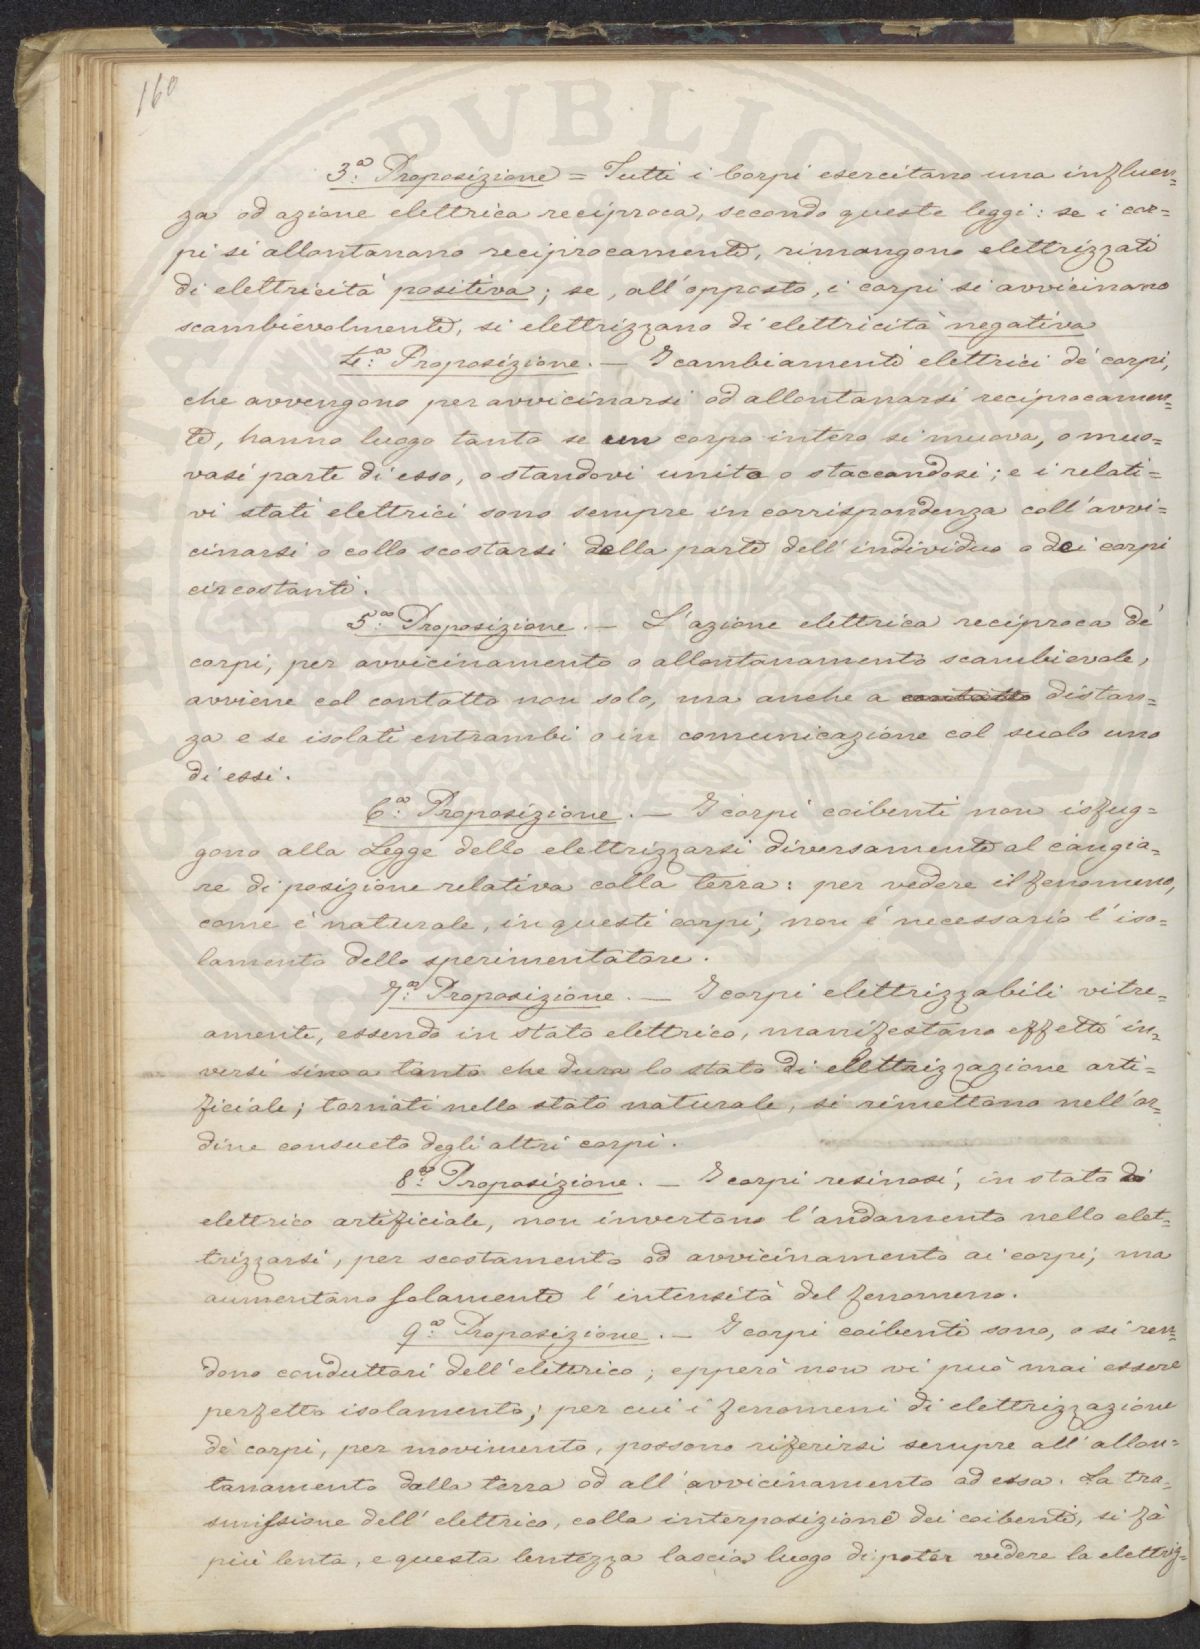 160
3.ª Proposizione = Tutti i Corpi esercitano una influen=
za od azione elettrica reciproca, secondo queste leggi: se i cor=
pi si allontanano reciprocamente, rimangono elettrizzati
di elettricità positiva; se, all'opposto, i corpi si avvicinano
scambievolmente, si elettrizzano di elettricità negativa
4.ª Proposizione. — I cambiamenti elettrici de' corpi,
che avvengono per avvicinarsi od allontanarsi reciprocamen=
te, hanno luogo tanto se un corpo intero si muova, o muo=
vasi parte di esso, o standovi unita o staccandosi; e i relati=
vi stati elettrici sono sempre in corrispondenza coll'avvi=
cinarsi o collo scostarsi della parte dell'individuo o dei corpi
circostanti.
5.ª Proposizione. — L'azione elettrica reciproca de'
corpi, per avvicinamento o allontanamento scambievole,
avviene col contatto non solo, ma anche a contatto distan=
za e se isolati entrambi o in comunicazione col suolo uno
di essi.
6.ª Proposizione. — I corpi coibenti non isfug=
gono alla Legge dello elettrizzarsi diversamente al cangia=
re di posizione relativa colla terra: per vedere il fenomeno,
come è naturale, in questi corpi, non è necessario l'iso=
lamento dello sperimentatore.
7.ª Proposizione. — I corpi elettrizzabili vitre=
amente, essendo in stato elettrico, manifestano effetti in=
versi sino a tanto che dura lo stato di elettrizzazione arti=
ficiale; tornati nello stato naturale, si rimettono nell'or=
dine consueto degli altri corpi.
8.ª Proposizione. — I corpi resinosi, in stato di
elettrico artificiale, non invertono l'andamento nello elet=
trizzarsi, per scostamento od avvicinamento ai corpi; ma
aumentano solamente l'intensità del fenomeno.
9.ª Proposizione. — I corpi coibenti sono, o si ren=
dono conduttori dell'elettrico; epperò non vi può mai essere
perfetto isolamento; per cui i fenomeni di elettrizzazione
de' corpi, per movimento, possono riferirsi sempre all'allon=
tanamento dalla terra od all'avvicinamento ad essa. La tra=
smissione dell'elettrico, colla interposizione dei coibenti, si fà
più lenta, e questa lentezza lascia luogo di poter vedere la elettriz=